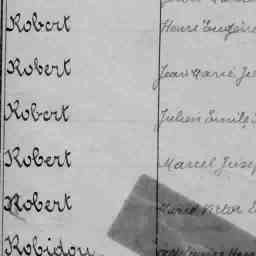 Robert Henri Eugène
Robert Jean Marie
Robert Julien Emile
Robert Marcel
Robert Victor
Robidou